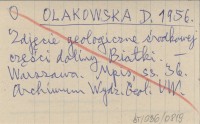 OLAKOWSKA D. 1956.
Zdjęcie geologiczne środkowej
części doliny Białki. —
Warszawa. Mps, cs. 36.
Archiwum Wydz. Geol. UW.